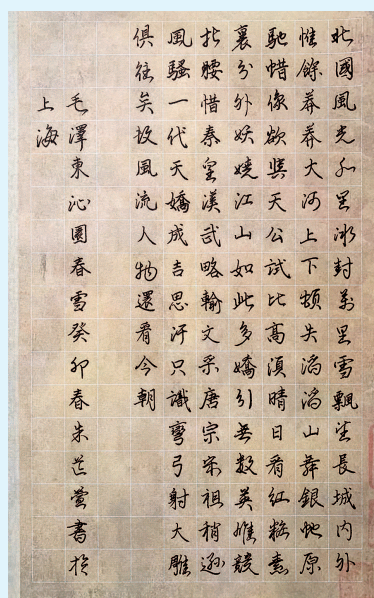 北國風光千里冰封萬里雪飄望長城內外
惟餘莽莽大河上下頓失滔滔山舞銀蛇原
馳蜡像欲與天公試比高須晴日看紅粧素
裹分外妖嬈江山如此多嬌引無數英雄競
折腰惜秦皇漢武略輸文采唐宗宋祖稍遜
風騷一代天嬌成吉思汗只識彎弓射大雕
俱往矣數風流人物還看今朝
毛澤東沁園春雪癸卯春朱芷萱書於
上海